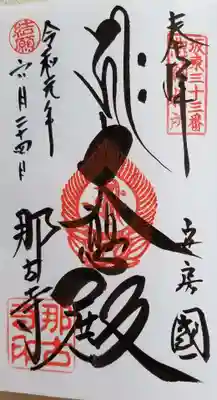 奉拝
坂東三十三番
安房國
大悲殿
結願
令和元年
六月二十四日
那古寺
那古寺印